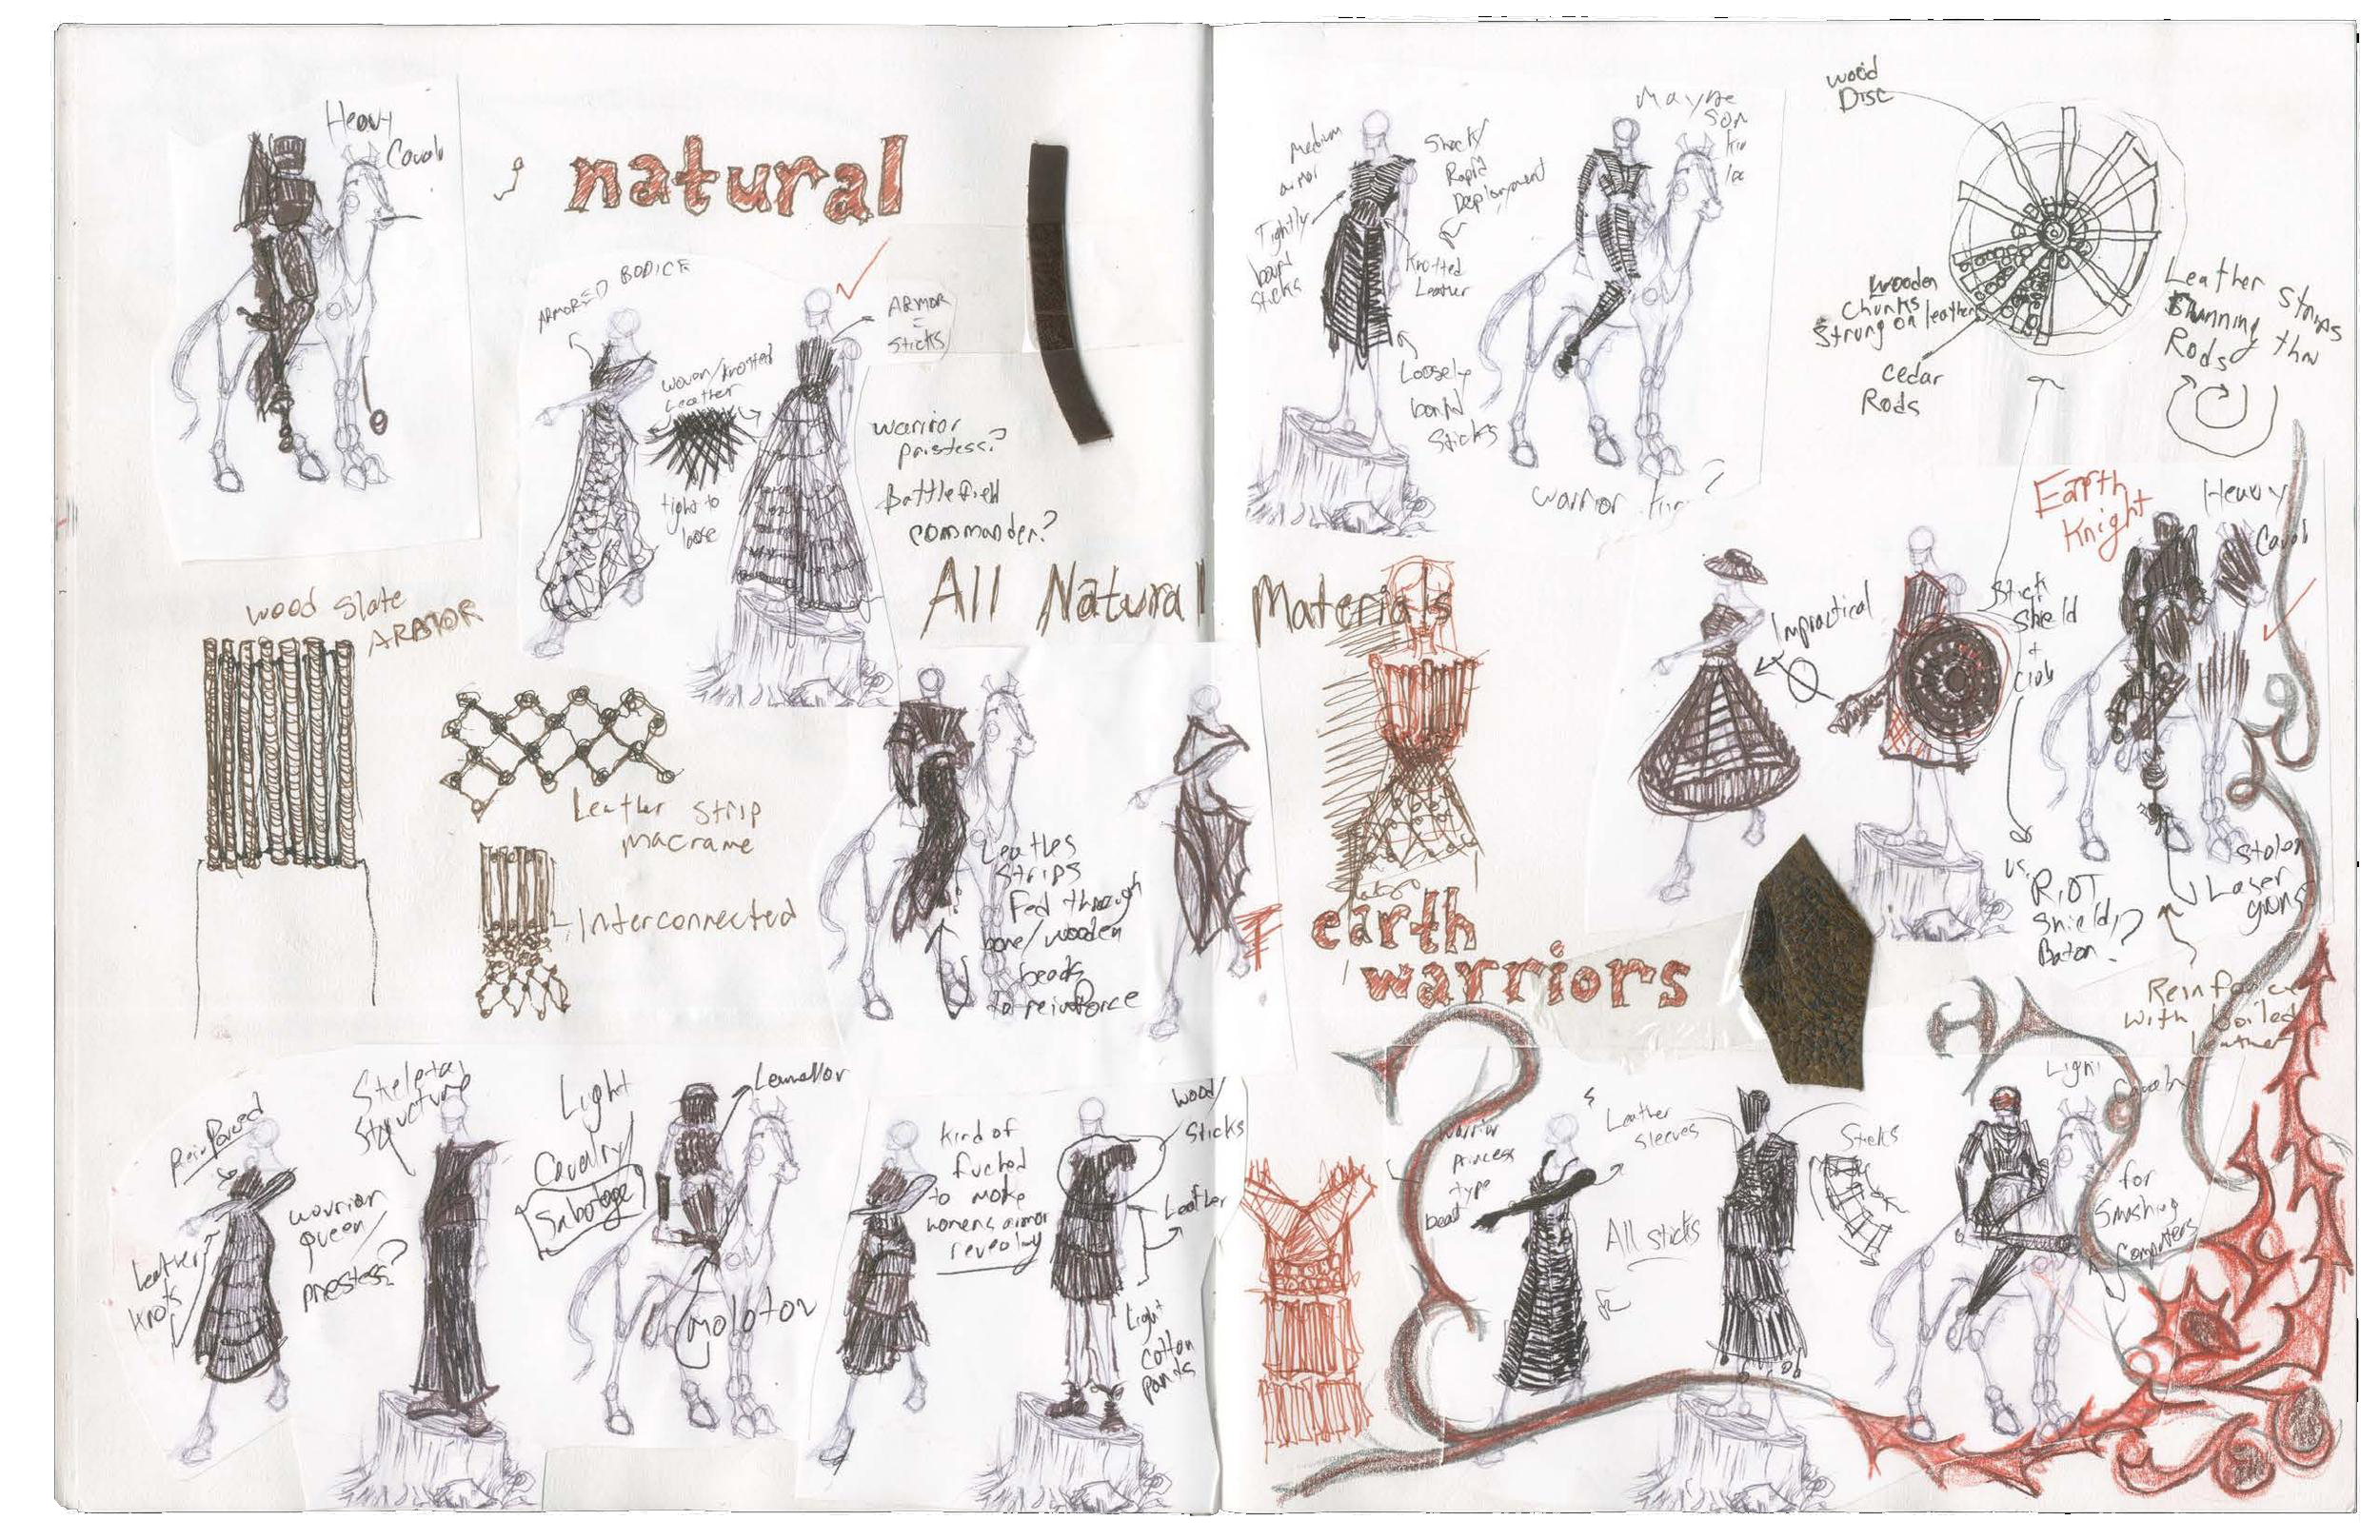 Heavy
Caval
natural
ARMORED BODICE
ARMOR
=
Sticks
Woven/knotted
Leather
tight to
loose
warrior
pristess?
Battlefield
commander?
wood Slate
ARMOR
Leather Strip
macrame
Interconnected
All Natural Materials
Leathes
Strips
Fed through
bone/wooden
beads
to reinforce
Reinforced
Leather
knots
Skeletal
Structure
warrior
queen/
priestess?
Light
Cavalry/
Sabotage
Lamellar
Molotov
kind of
fucked
to make
womens armor
revealing
Wood/
Sticks
Leather
Light
Cotton
pants
Medium
armor
Tightly
bound
Sticks
Shock/
Rapid
Deployment
Knotted
Leather
Loosely
bound
Sticks
Mayne
Son
warrior
wood
Disc
Wooden
Chunks
Strung on leather
cedar
Rods
Leather Strips
Running thru
Rods
Earth
Knight
Heavy
Caval
Impractical
Stick
Shield
+
Club
vs.
RiOT
Shield,
Baton?
Stolen
Laser
guns
Reinforce
with boiled
leather
earth
warriors
warrior
princess
type
beat
Leather
sleeves
All sticks
Sticks
Light
Cavalry
for
Smashing
Computers